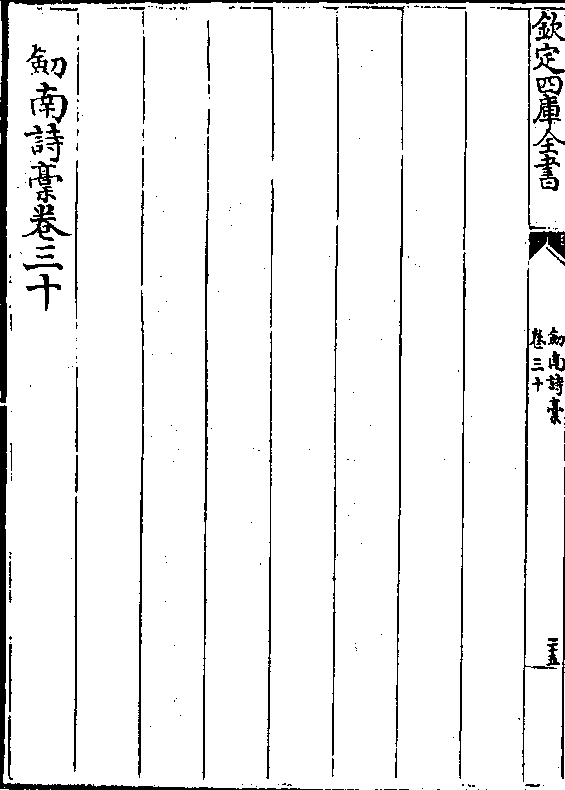 欽定四庫全書
劒南詩藁
卷三十
二十五
劒南詩藁卷三十